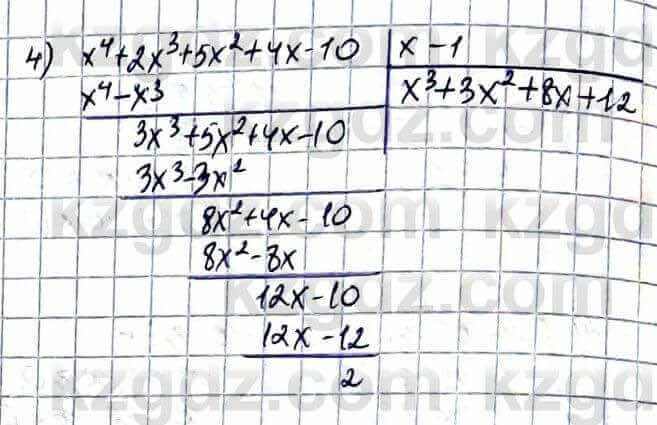 4) x⁴+2x³+5x²+4x-10 | x-1
x⁴-x³ x³+3x²+8x+12
3x³+5x²+4x-10
3x³-3x²
8x²+4x-10
8x²-8x
12x-10
12x-12
2
kzgdz.com